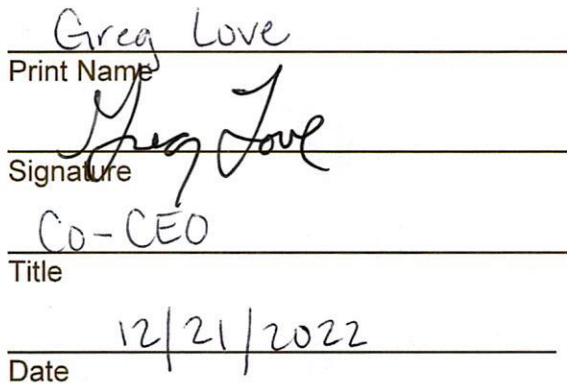 Greg Love
Print Name
Greg Love
Signature
Co-CEO
Title
12/21/2022
Date